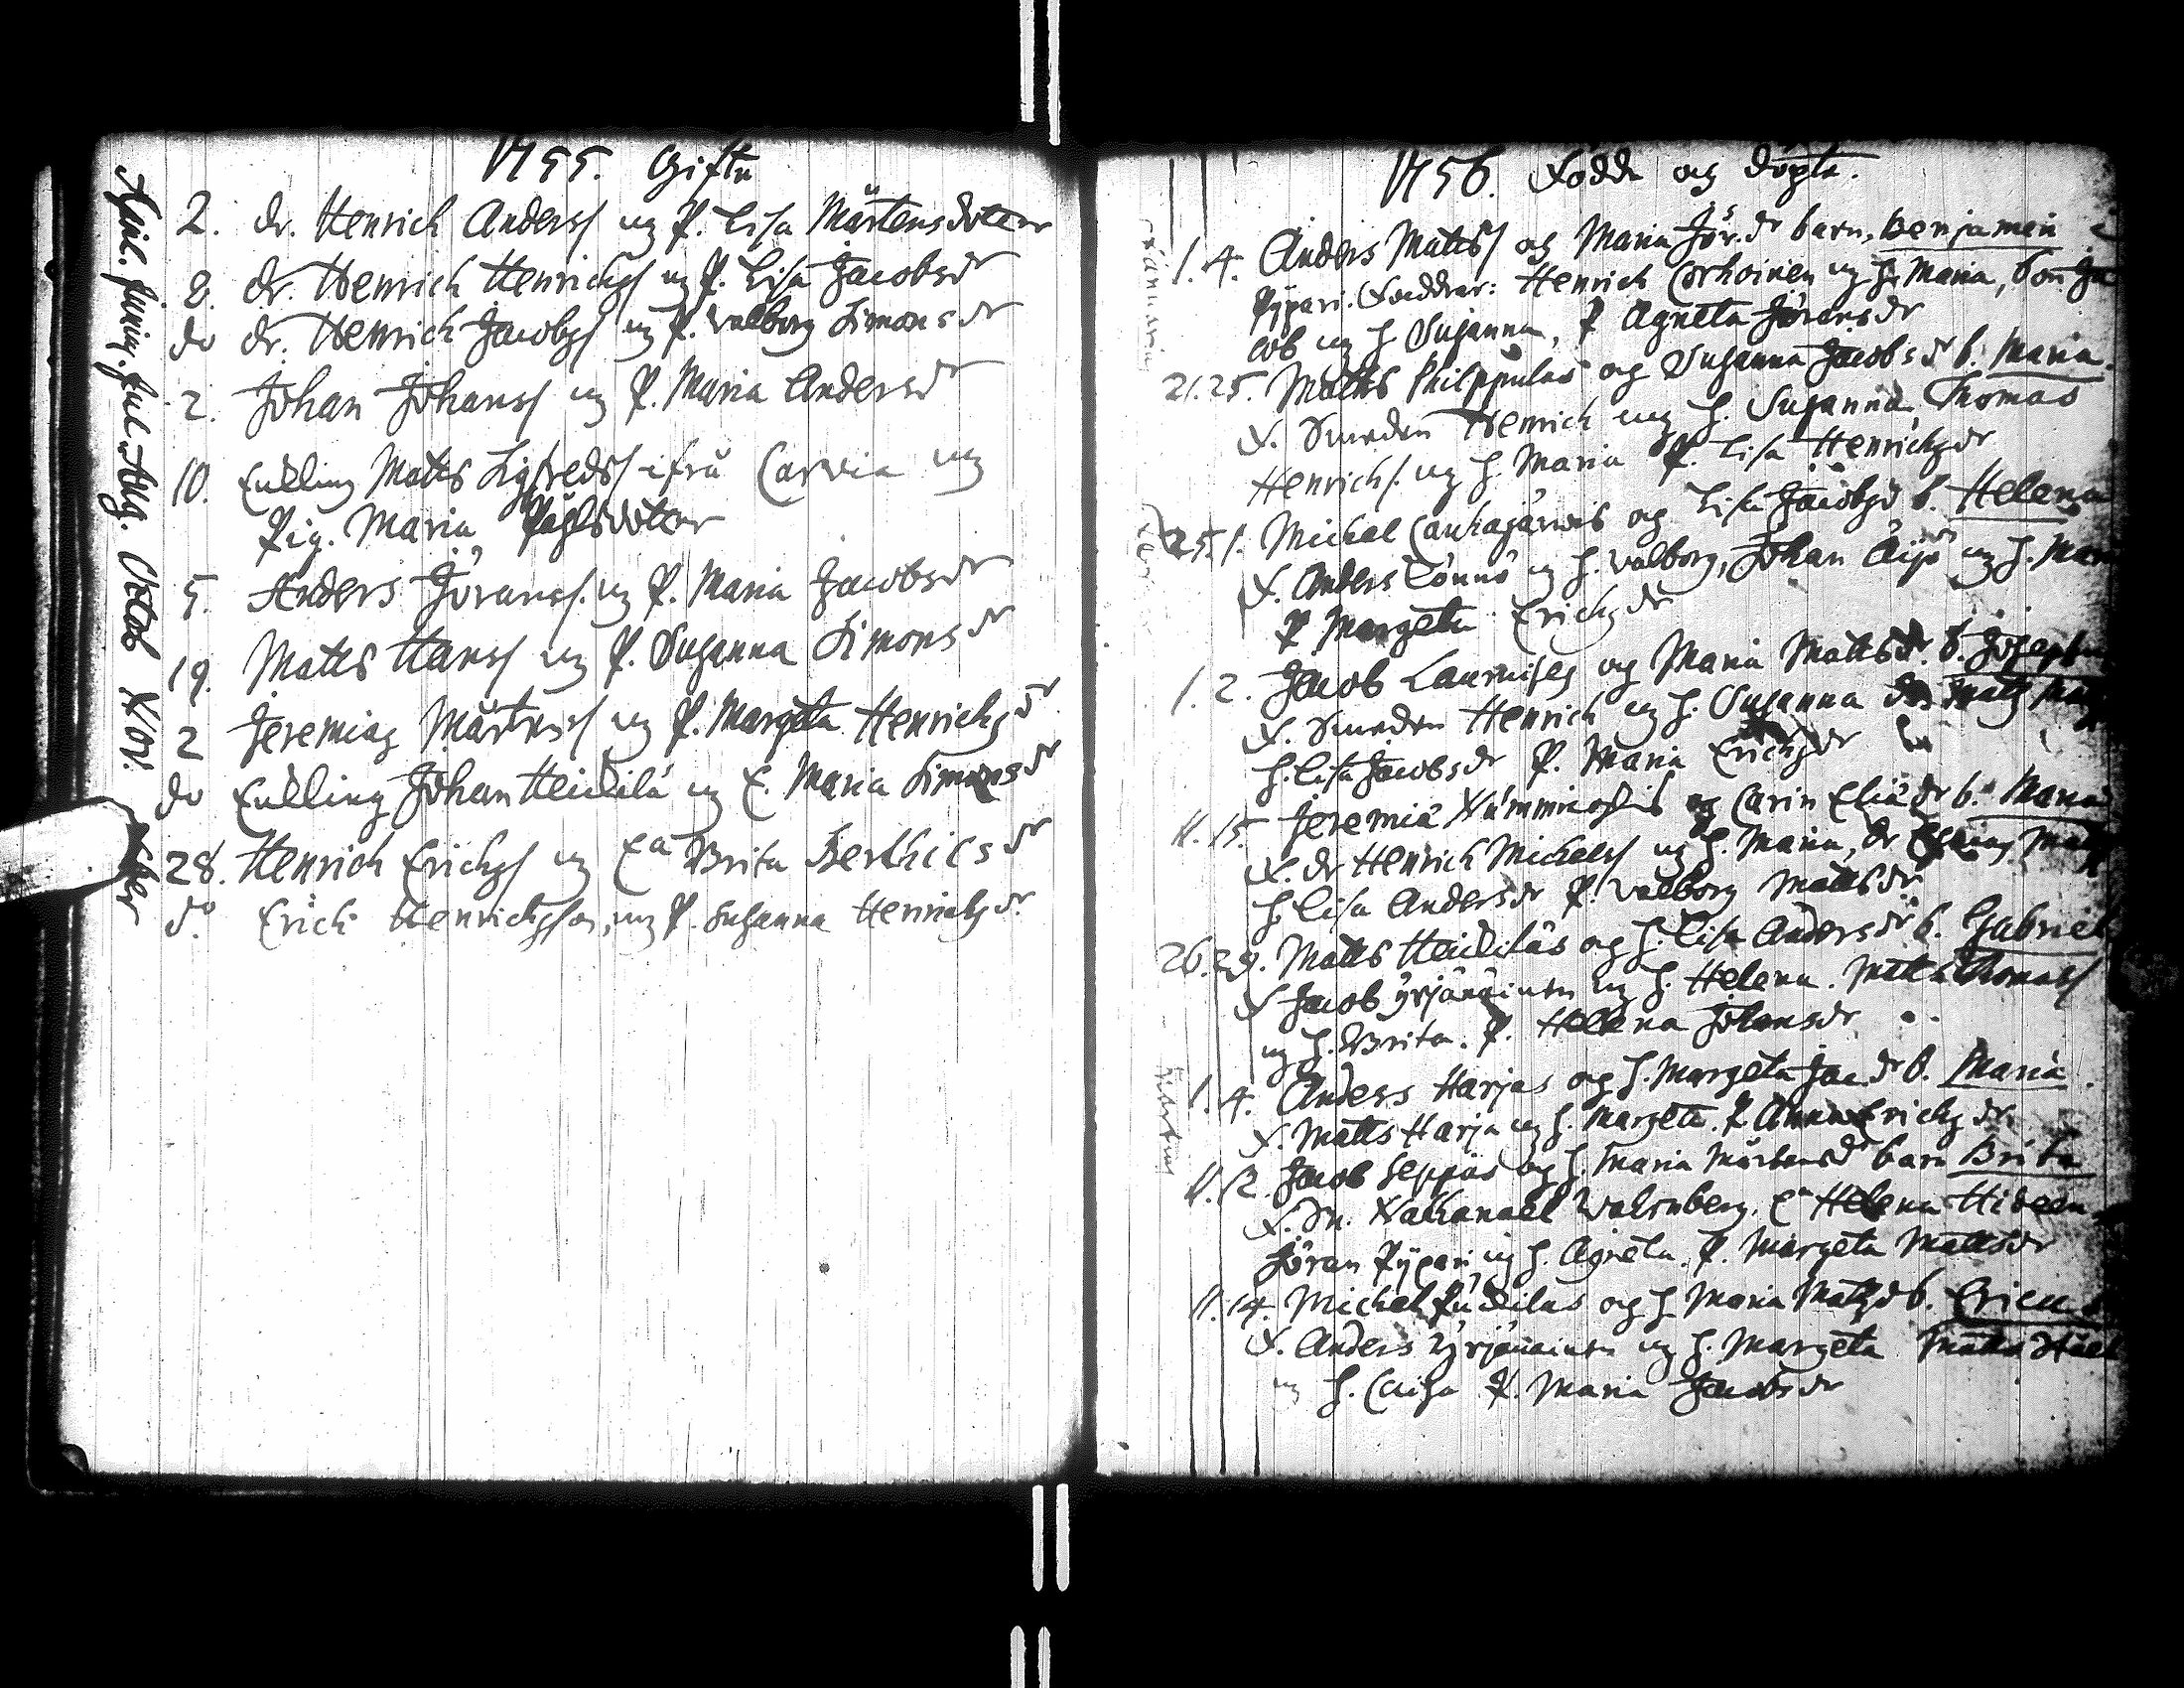 1755. Gifte
April. Junij. Jul. Aug. Octob Nov.
2. dr. Henrich Anderss och P. Lisa Mårtensdotter
8. dr. Henrich Henrichss och P. Lisa Jacobsdr
do dr. Henrich Jacobss och P. Walborg Simonsdr
2. Johan Johanss och P. Maria Andersdr
10. Enkling Matts Sigfredss ifrå Carvia och
Pig. Maria Påhlsdotter
5. Anders Jöranss. och P. Maria Jacobsdr
19. Matts Hanss och P. Susanna Simonsdr
2 Jeremias Mårtenss och P. Margeta Henrichsdr
do Enkling Johan Heickilä och E. Maria Simonsdr
28. Henrich Erichss och Ea Brita Berthilsdr
do Erich Henrichsson, och P. Susanna Henrichsdr.
1756. Födde og döpte.
Januarii
1. 4. Anders Mattss og Maria Jör.dr barn, Benjamin
Pypari. Faddrar: Henrich Corhoinen og H. Maria, bon Ja
cob og H. Susanna, P Agneta Jöransdr
21. 25. Matts Philppulas og Susanna Jacobsdr b. Maria.
F. Smeden Henrich og H. Susanna. Thomas
Henrichs. og H. Maria P. Lisa Henrichsdr
25. 1. Michel Caukajärvis og Lisa Jacobsdr b. Helena
F. Anders Lönnö og H. Walborg, Johan Äijö og H. Mar
P Margeta Erichsdr
1. 2. Jacob Laurnises og Maria Mattsdr. b. Joseph
F. Smeden Henrich og H. Susanna
H. Lisa Jacobsdr P. Maria Erichsdr
11. 15. Jeremia Nummicoskis og Carin Eliædr b. Maria
F. dr Henrich Michelss og H. Maria, dr
H. Lisa Andersdr P. Walborg Mattsdr
26. 29. Matts Heickiläs og H. Lisa Andersdr b. Gabriel
F Jacob Yrjänäinen og H. Helena. Matts Thomass
og H. Brita. P. Helena Johansdr
1. 4. Anders Harjas og H. Margeta Jac.dr b. Maria.
F. Matts Harja og H. Margeta. P Anna Erichsdr
11. 12. Jacob Seppäs og H. Maria Mårtensdr barn Brita
F. Sn. Nathanael Walenberg. Ea Helena Hideen
Jöran Pypari og H. Agneta. P. Margeta Mattsdr
11. 14. Michel og H. Maria Mattsdr b. Erich
F. Anders Yrjänäinen og H. Margeta Matts
og H. Caisa P. Maria Jacobsdr